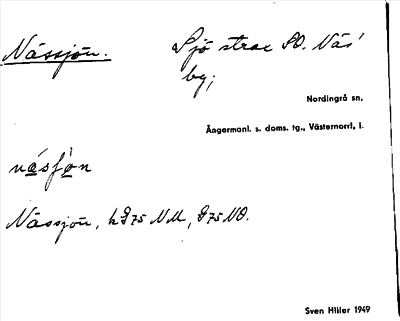 Nässjön.
Sjö strax SO. Näs'
by;
Nordingrå sn.
Ångermanl. s. doms. tg., Västernorrl. l.
näsfˈon
Nässjön, k G75 NM, G75 NO.
Sven Hiller 1949